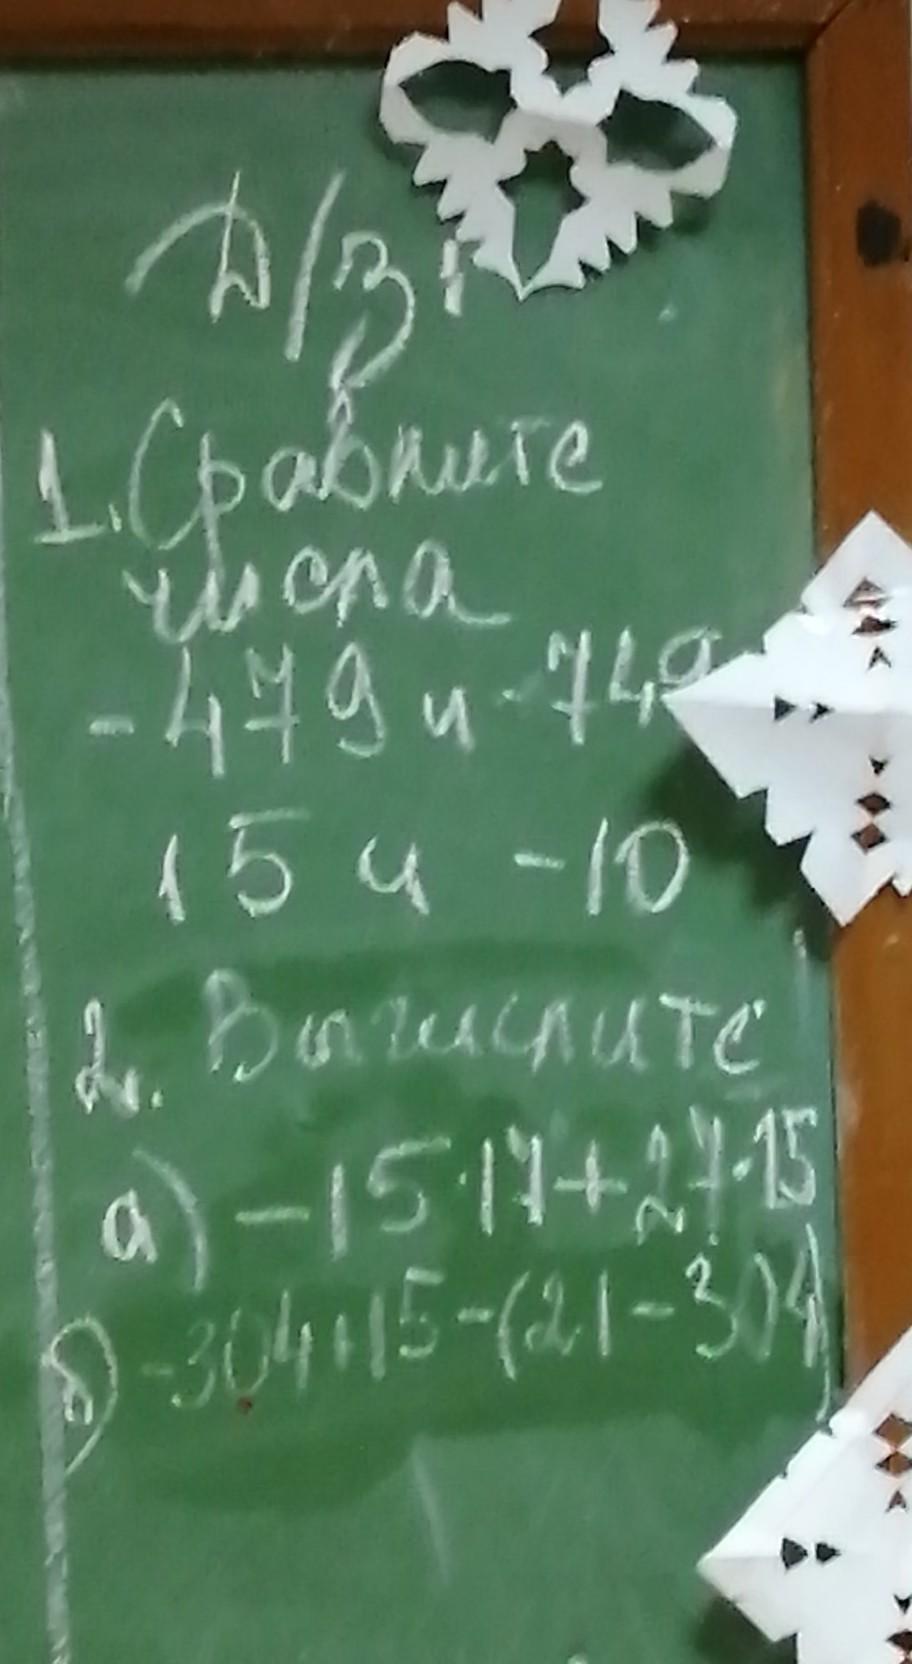 Д/з:
1. Сравните
числа
-479 и -749
15 и -10
2. Вычислите
а) -15·17+27·15
б) -304+15-(21-304)